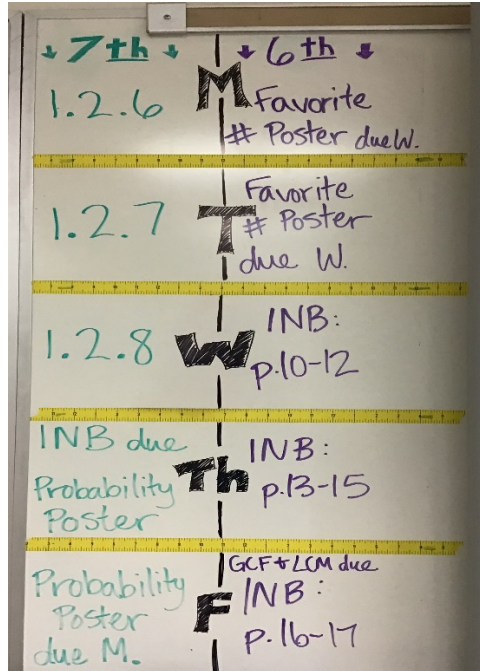 ↓ 7th ↓ ↓ 6th ↓
M
1.2.6
Favorite
# Poster due W.
T
1.2.7
Favorite
# Poster
due W.
W
1.2.8
INB:
p.10-12
Th
INB due
Probability
Poster
INB:
p.13-15
F
Probability
Poster
due M.
GCF + LCM due
INB:
p.16-17